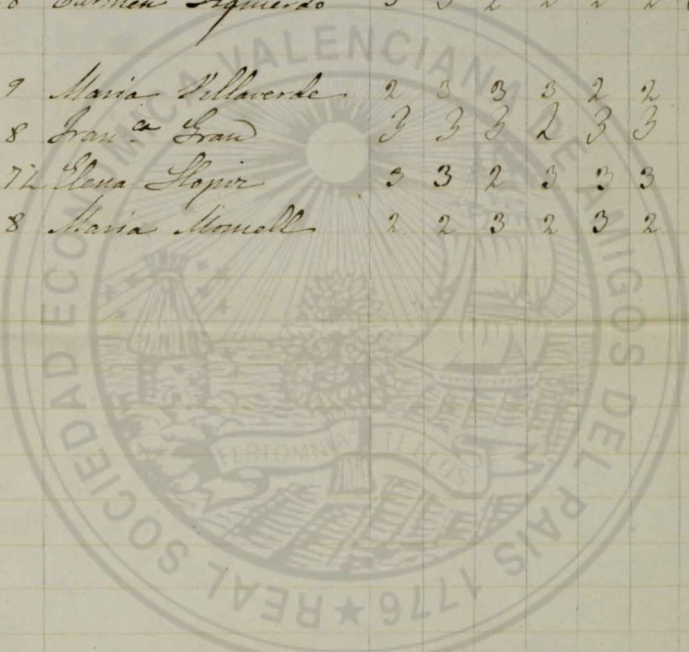 8 Carmen Izquierdo 3 3 2 2 2 2
9 Maria Villaverde 2 3 3 3 2 2
8 Fran.ca Grau 3 3 3 2 3 3
7½ Elena Llopiz 3 3 2 3 3 3
8 Maria Momell 2 2 3 2 3 2
REAL SOCIEDAD ECONOMICA VALENCIANA DE AMIGOS DEL PAIS 1776
FERT OMNIA TELLUS